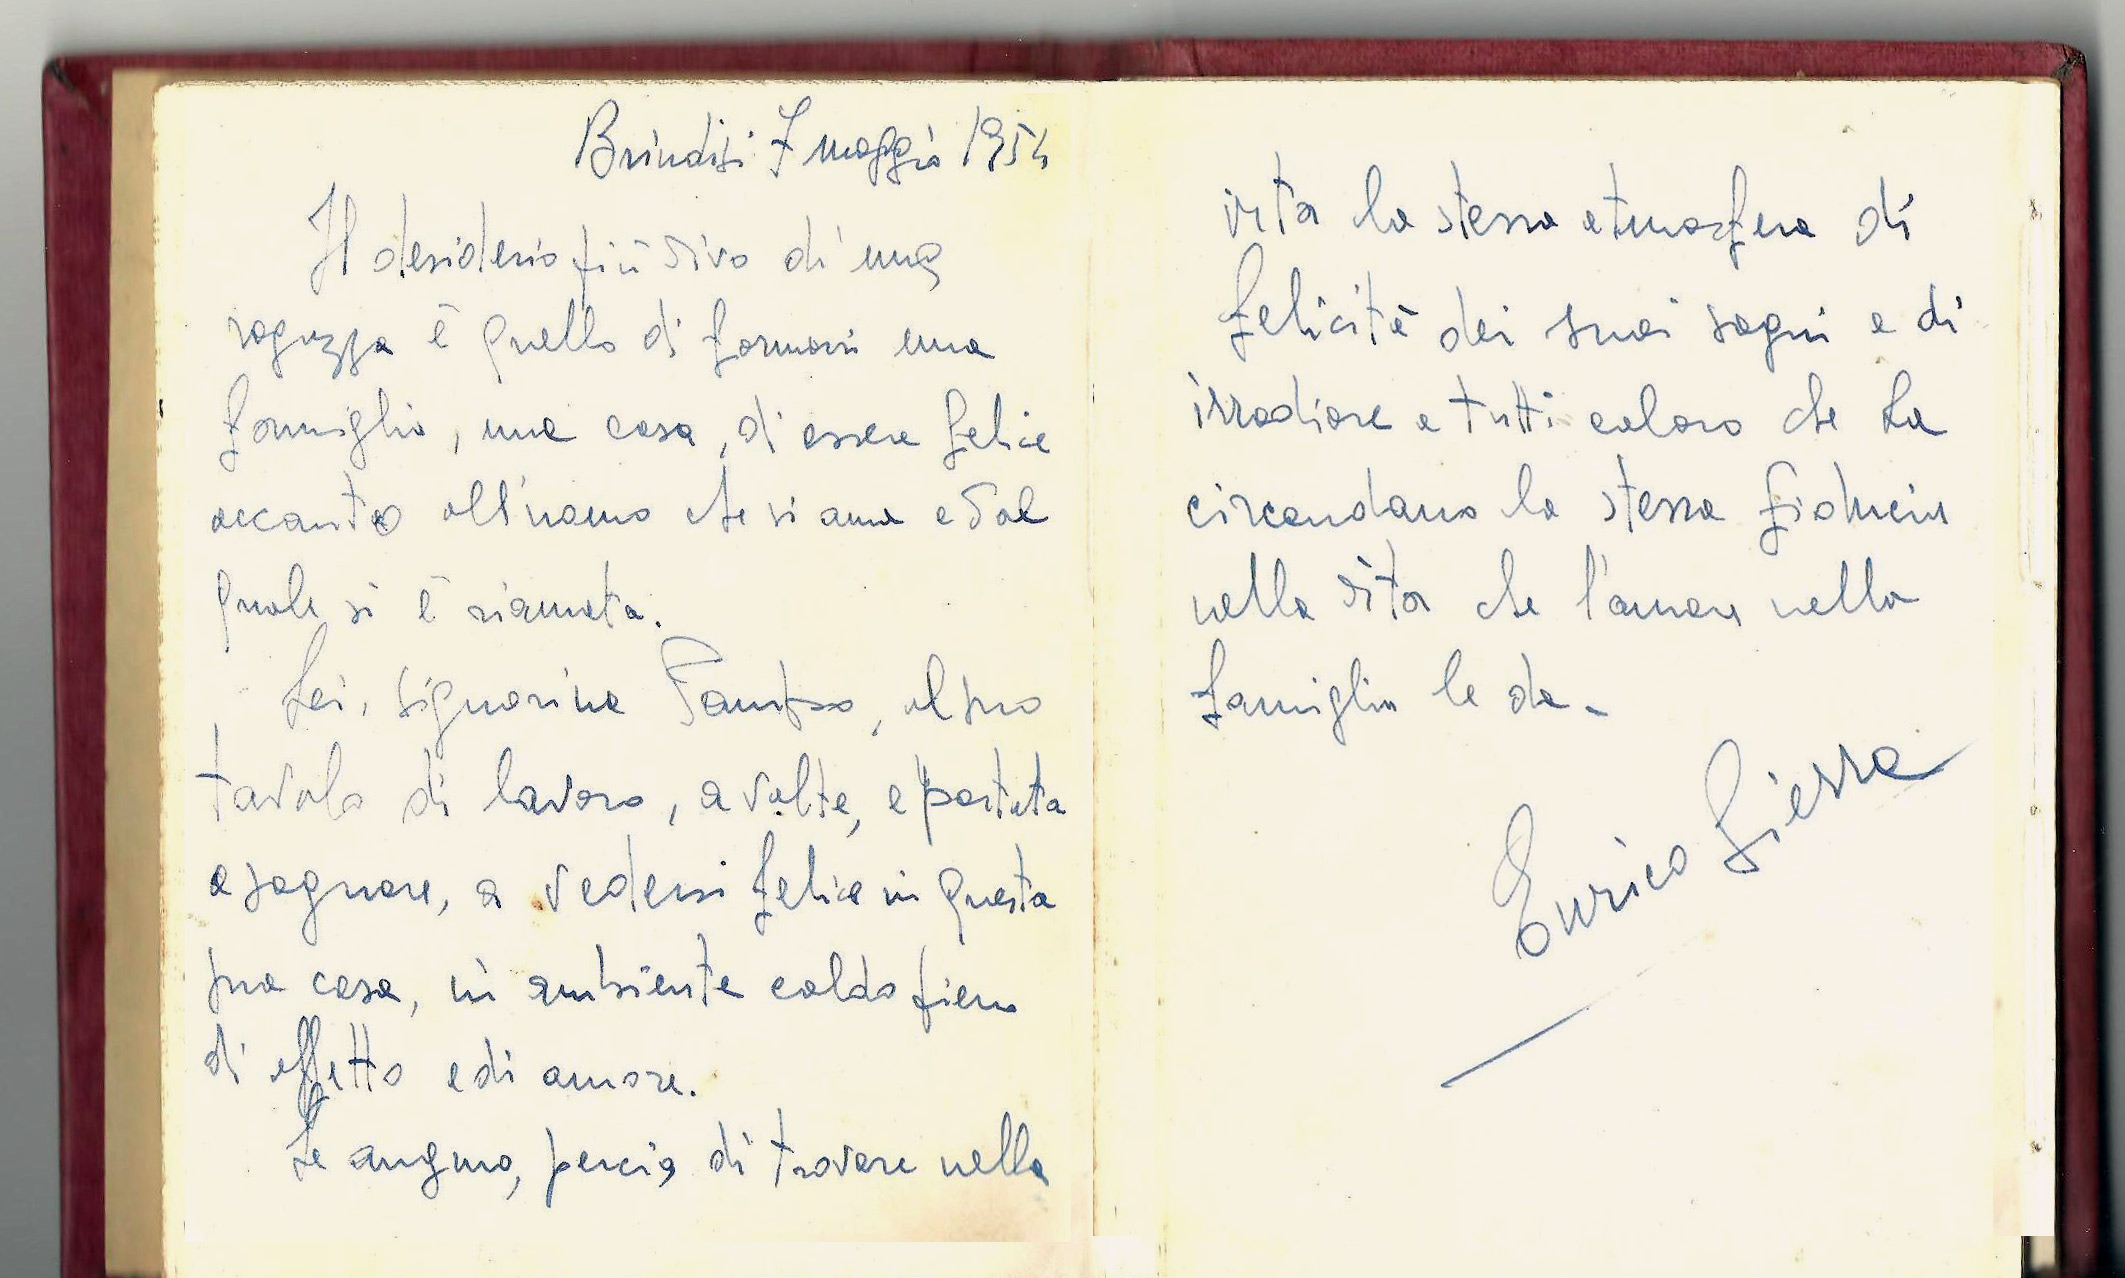 Brindisi 7 maggio 1954
Il desiderio più vivo di una
ragazza è quello di formarsi una
famiglia, una casa, di essere felice
accanto all'uomo che si ama e dal
quale si è riamata.
Lei, signorina, al suo
tavolo di lavoro, a volte, è portata
a sognare, a vedersi felice in questa
sua casa, in ambiente caldo pieno
di affetto e di amore.
Le auguro, perciò, di trovare nella
vita la stessa atmosfera di
felicità dei suoi sogni e di
irradiare a tutti coloro che La
circondano la stessa fiducia
nella vita che l'amore nella
famiglia le da.
Enrico Sierra